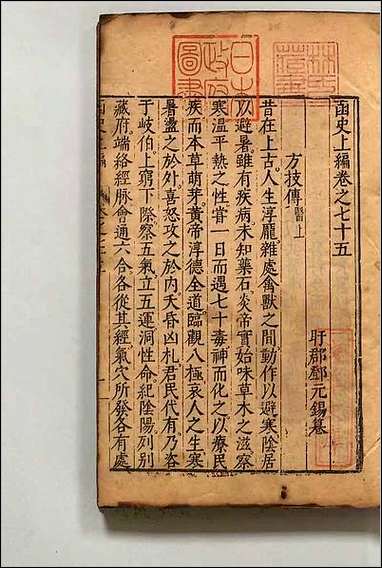 函史上編卷之七十五
盱郡鄧元錫纂
方技傳 醫上
昔在上古人生淳龐雜處禽獸之間動作以避寒陰居
以避暑雖有疾病未知藥石炎帝實始味草木之滋察
寒溫平熱之性嘗一日而遇七十毒神而化之以療民
疾而本草萌芽黃帝淳德全道臨觀八極哀人之生寒
暑盪之於外喜怒攻之於內夭昏凶札君民代有乃咨
于岐伯上窮下際察五氣立五運洞性命紀陰陽列別
藏府端絡經脈會通六合各從其經氣穴所發各有處
函史上編
日本
政府
圖書